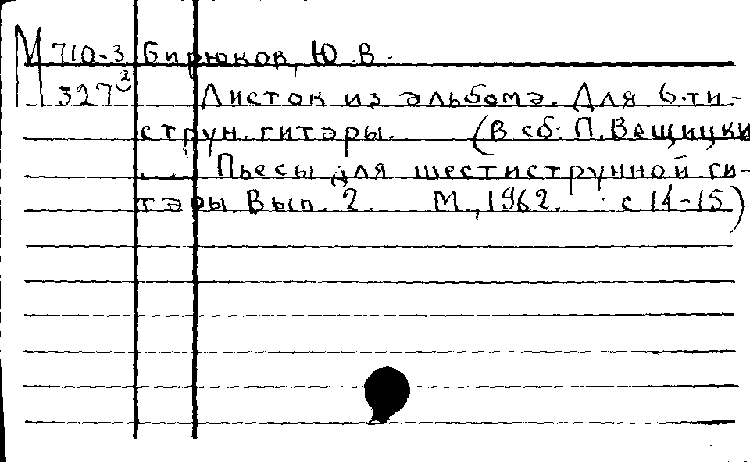 М 710-3 Бирюков, Ю. В.
327² Листок из альбома. Для 6-ти-
струн. гитары. (В сб: П. Вещицки
.... Пьесы для шестиструнной ги-
тары. Вып. 2. М., 1962. с 14-15)